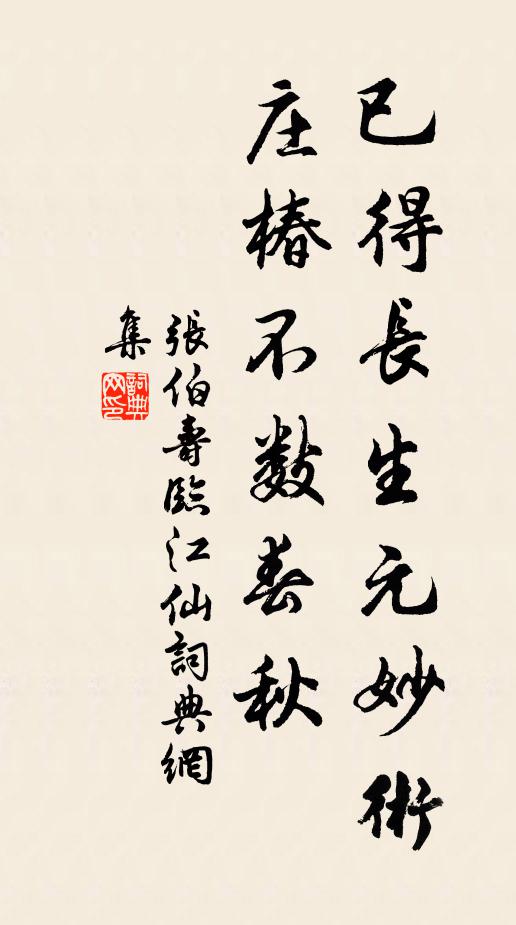 已得長生元妙術
庄椿不数春秋
張伯壽臨江仙詞典網
集
詞典
网印